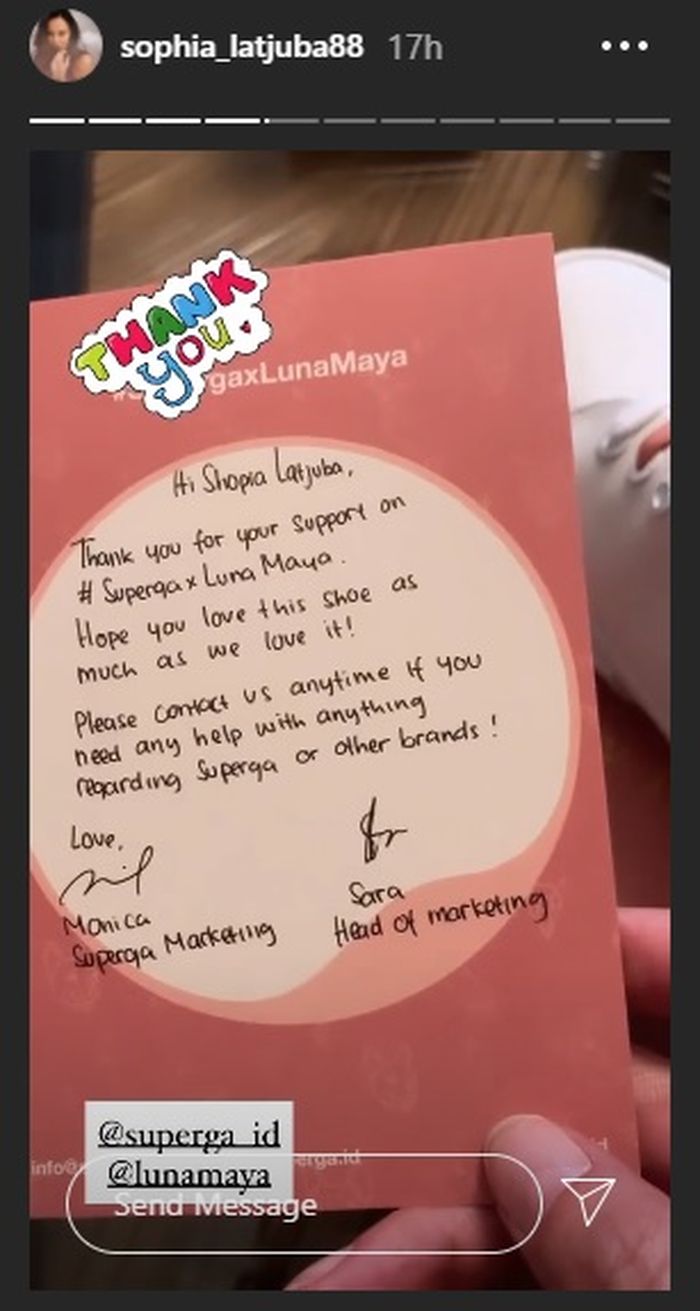 sophia_latjuba88 17h
THANK
YOU
gaxLunaMaya
Hi Shopia Latjuba,
Thank you for your support on
# Superga x Luna Maya.
Hope you love this shoe as
much as we love it!
Please contact us anytime if you
need any help with anything
regarding Superga or other brands!
Love,
Monica
Superga Marketing
Sara
Head of marketing
@superga_id
info@ erga.id
@lunamaya
Send Message